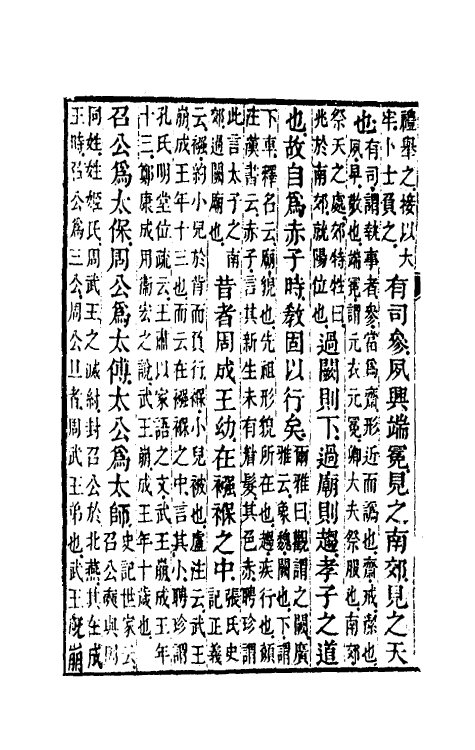 禮舉之接以大
牢卜士負之
有司參夙興端冕見之南郊見之天
也
有司謂執事者參當爲齋形近而譌也齋戒潔也
夙早敬也端冕謂元衣元冕卿大夫祭服也南郊
祭天之處郊特牲曰
兆於南郊就陽位也
過闕則下過廟則趨孝子之道
也故自爲赤子時敎固以行矣
爾雅曰觀謂之闕廣
雅云象魏闕也下謂
下車釋名云廟貌也先祖形貌所在也趨疾行也顔
注漢書云赤子言其新生未有眉髮其色赤聘珍謂
此言太子之南
郊過闕廟也
昔者周成王幼在襁褓之中
張氏史
記正義
云襁約小兒於背而負行褓小兒被也盧注云武王
崩成王年十三也而云在襁褓之中言其小聘珍謂
孔氏明堂位疏云王肅以家語之文武王崩成王年
十三鄭康成用衞宏之說武王崩成王年十歲也
召公爲太保周公爲太傅太公爲太師
史記世家云
召公奭與周
同姓姓姬氏周武王之滅紂封召公於北燕其在成
王時召公爲三公周公旦者周武王弟也武王既崩